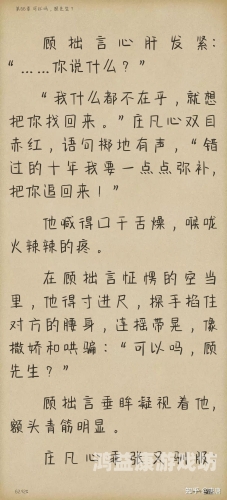 第86章 可以吗，顾先生？
顾拙言心肝发紧：
“……你说什么？”
“我什么都不在乎，就想
把你找回来。”庄凡心双目
赤红，语句掷地有声，“错
过的十年我要一点点弥补，
把你追回来！”
他喊得口干舌燥，喉咙
火辣辣的疼。
在顾拙言怔愣的空当
里，他得寸进尺，探手掐住
对方的腰身，连摇带晃，像
撒娇和哄骗：“可以吗，顾
先生？”
顾拙言垂眸凝视着他，
额头青筋明显。
庄凡心乖张又驯服
鸿益康游戏坊